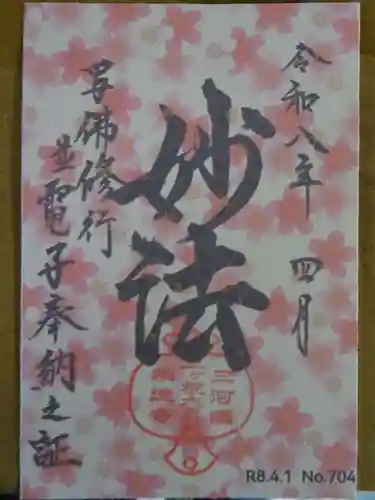 令和八年 四月
妙法
写佛修行
並電子奉納之証
R8.4.1 No.704